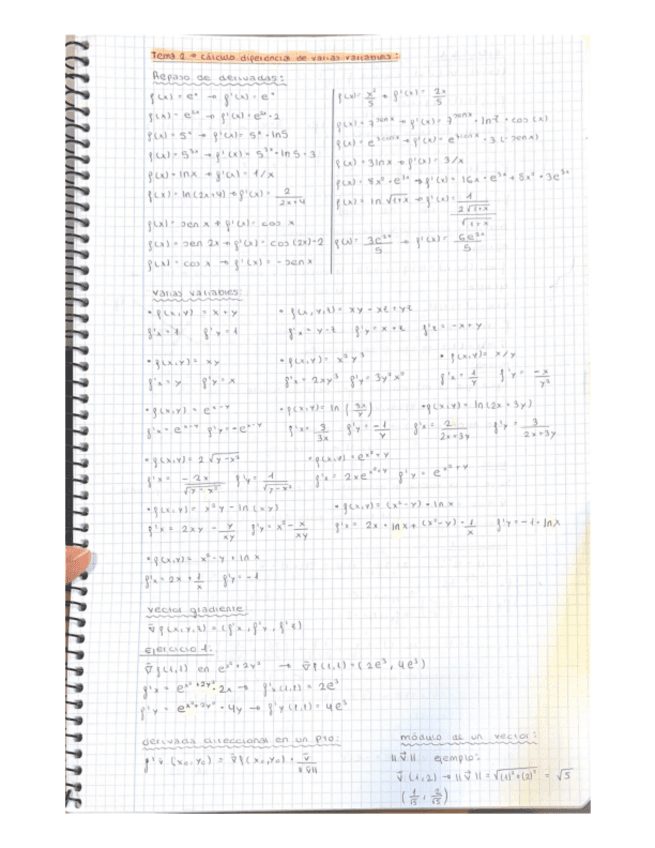 Tema 2 → cálculo diferencial de varias variables:
Repaso de derivadas:
f(x) = eˣ → f'(x) = eˣ
f(x) = e²ˣ → f'(x) = e²ˣ · 2
f(x) = 5ˣ → f'(x) = 5ˣ · ln5
f(x) = 5³ˣ → f'(x) = 5³ˣ · ln5 · 3
f(x) = lnx → f'(x) = 1/x
f(x) = ln(2x+4) → f'(x) = 2/(2x+4)
f(x) = sen x → f'(x) = cos x
f(x) = sen 2x → f'(x) = cos(2x)·2
f(x) = cos x → f'(x) = -senx
f(x) = x²/5 → f'(x) = 2x/5
f(x) = 7^senx → f'(x) = 7^senx · ln7 · cos(x)
f(x) = e^3cosx → f'(x) = e^3cosx · 3(-senx)
f(x) = 3lnx → f'(x) = 3/x
f(x) = 8x² · e³ˣ → f'(x) = 16x · e³ˣ + 8x² · 3e³ˣ
f(x) = ln √(1+x) → f'(x) = (1/(2√(1+x)))/√(1+x)
f(x) = 3e²ˣ/5 → f'(x) = 6e²ˣ/5
varias variables:
• f(x,y) = x+y • f(x,y,z) = xy - xz + yz
f'x = 1 f'y = 1 f'x = y-z f'y = x+z f'z = -x+y
• f(x,y) = xy • f(x,y) = x²y³ • f(x,y) = x/y
f'x = y f'y = x f'x = 2xy³ f'y = 3y²x² f'x = 1/y f'y = -x/y²
• f(x,y) = e^x-y • f(x,y) = ln(3x/y) • f(x,y) = ln(2x+3y)
f'x = e^x-y f'y = -e^x-y f'x = 3/3x f'y = -1/y f'x = 2/(2x+3y) f'y = 3/(2x+3y)
• f(x,y) = 2√(y-x²) • f(x,y) = e^x²+y
f'x = -2x/√(y-x²) f'y = 1/√(y-x²) f'x = 2xe^x²+y f'y = e^x²+y
• f(x,y) = x²y - ln(xy) • f(x,y) = (x²-y) · lnx
f'x = 2xy - y/xy f'y = x² - x/xy f'x = 2x · lnx + (x²-y) · 1/x f'y = -1 · lnx
• f(x,y) = x² - y + lnx
f'x = 2x + 1/x f'y = -1
vector gradiente
∇f(x,y,z) = (f'x, f'y, f'z)
Ejercicio 1:
∇f(1,1) en e^x²+2y² → ∇f(1,1) = (2e³, 4e³)
f'x = e^x²+2y² · 2x → f'x(1,1) = 2e³
f'y = e^x²+2y² · 4y → f'y(1,1) = 4e³
derivada direccional en un pto:
f'v (x₀,y₀) = ∇f(x₀,y₀) · v/||v||
módulo de un vector:
||v|| ejemplo:
v (1,2) → ||v|| = √((1)²+(2)²) = √5
(1/√5, 2/√5)